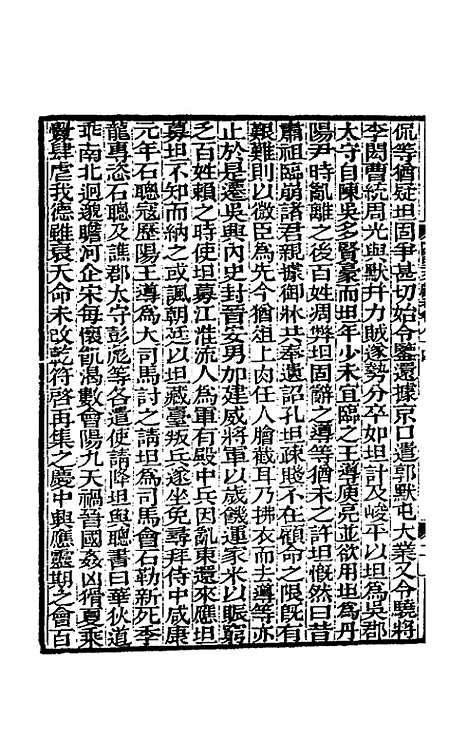 侃等猶疑坦固爭甚切始令鑒還據京口遣郭默屯大業又令驍將
李閎曹統周光與默幷力賊遂勢分卒如坦計及峻平以坦爲吳郡
太守自陳吳多賢豪而坦年少未宜臨之王導庾亮並欲用坦爲丹
陽尹時亂離之後百姓凋弊坦固辭之導等猶未之許坦慨然曰昔
肅祖臨崩諸君親據御牀共奉遺詔孔坦疎賤不在顧命之限旣有
艱難則以微臣爲先今猶俎上肉任人膾截耳乃拂衣而去導等亦
止於是遷吳興內史封晉安男加建威將軍以歲饑運家米以賑窮
乏百姓賴之時使坦募江淮流人爲軍有殿中兵因亂東還來應坦
募坦不知而納之或諷朝廷以坦藏臺叛兵遂坐免尋拜侍中咸康
元年石聰寇歷陽王導爲大司馬討之請坦爲司馬會石勒新死季
龍專恣石聰及譙郡太守彭彪等各遣使請降坦與聰書曰華狄道
乖南北迥邈瞻河企宋每懷飢渴數會陽九天禍晉國姦凶猾夏乘
釁肆虐我德雖衰天命未改乾符啓再集之慶中興應靈期之會百